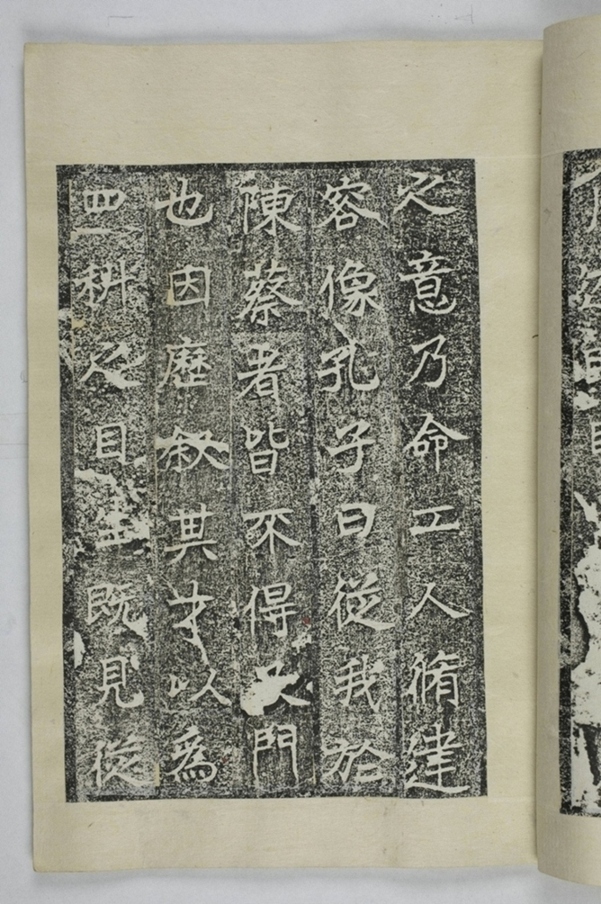 之意乃命工人脩建
容像孔子曰從我於
陳蔡者皆不得及門
也因歷叙其才以為
四科之目生既見從